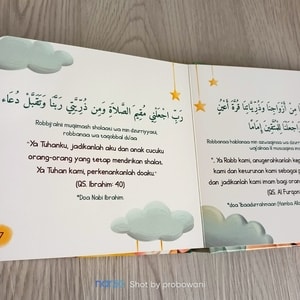 رَبِّ اجْعَلْنِي مُقِيمَ الصَّلَاةِ وَمِن ذُرِّيَّتِي رَبَّنَا وَتَقَبَّلْ دُعَاءِ
Robbij'alni muqimash sholaatu wa min dzurriyyati,
robbanaa wa taqobbal du'aa
"Ya Tuhanku, jadikanlah aku dan anak cucuku
orang-orang yang tetap mendirikan shalat,
Ya Tuhan kami, perkenankanlah doaku."
(QS. Ibrahim: 40)
*Doa Nabi Ibrahim
7
مِنْ أَزْوَاجِنَا وَذُرِّيَّاتِنَا قُرَّةَ أَعْيُنٍ
وَاجْعَلْنَا لِلْمُتَّقِينَ إِمَامًا
Robbanaa hablanaa min
"Ya Rabb kami, anugerahkanlah kepa
kami dan keturunan kami sebagai p
dan jadikanlah kami imam bagi oran
(QS. Al Furqon
*doa 'Ibaadurrahmaan (Hamba Alla
Shot by probowani